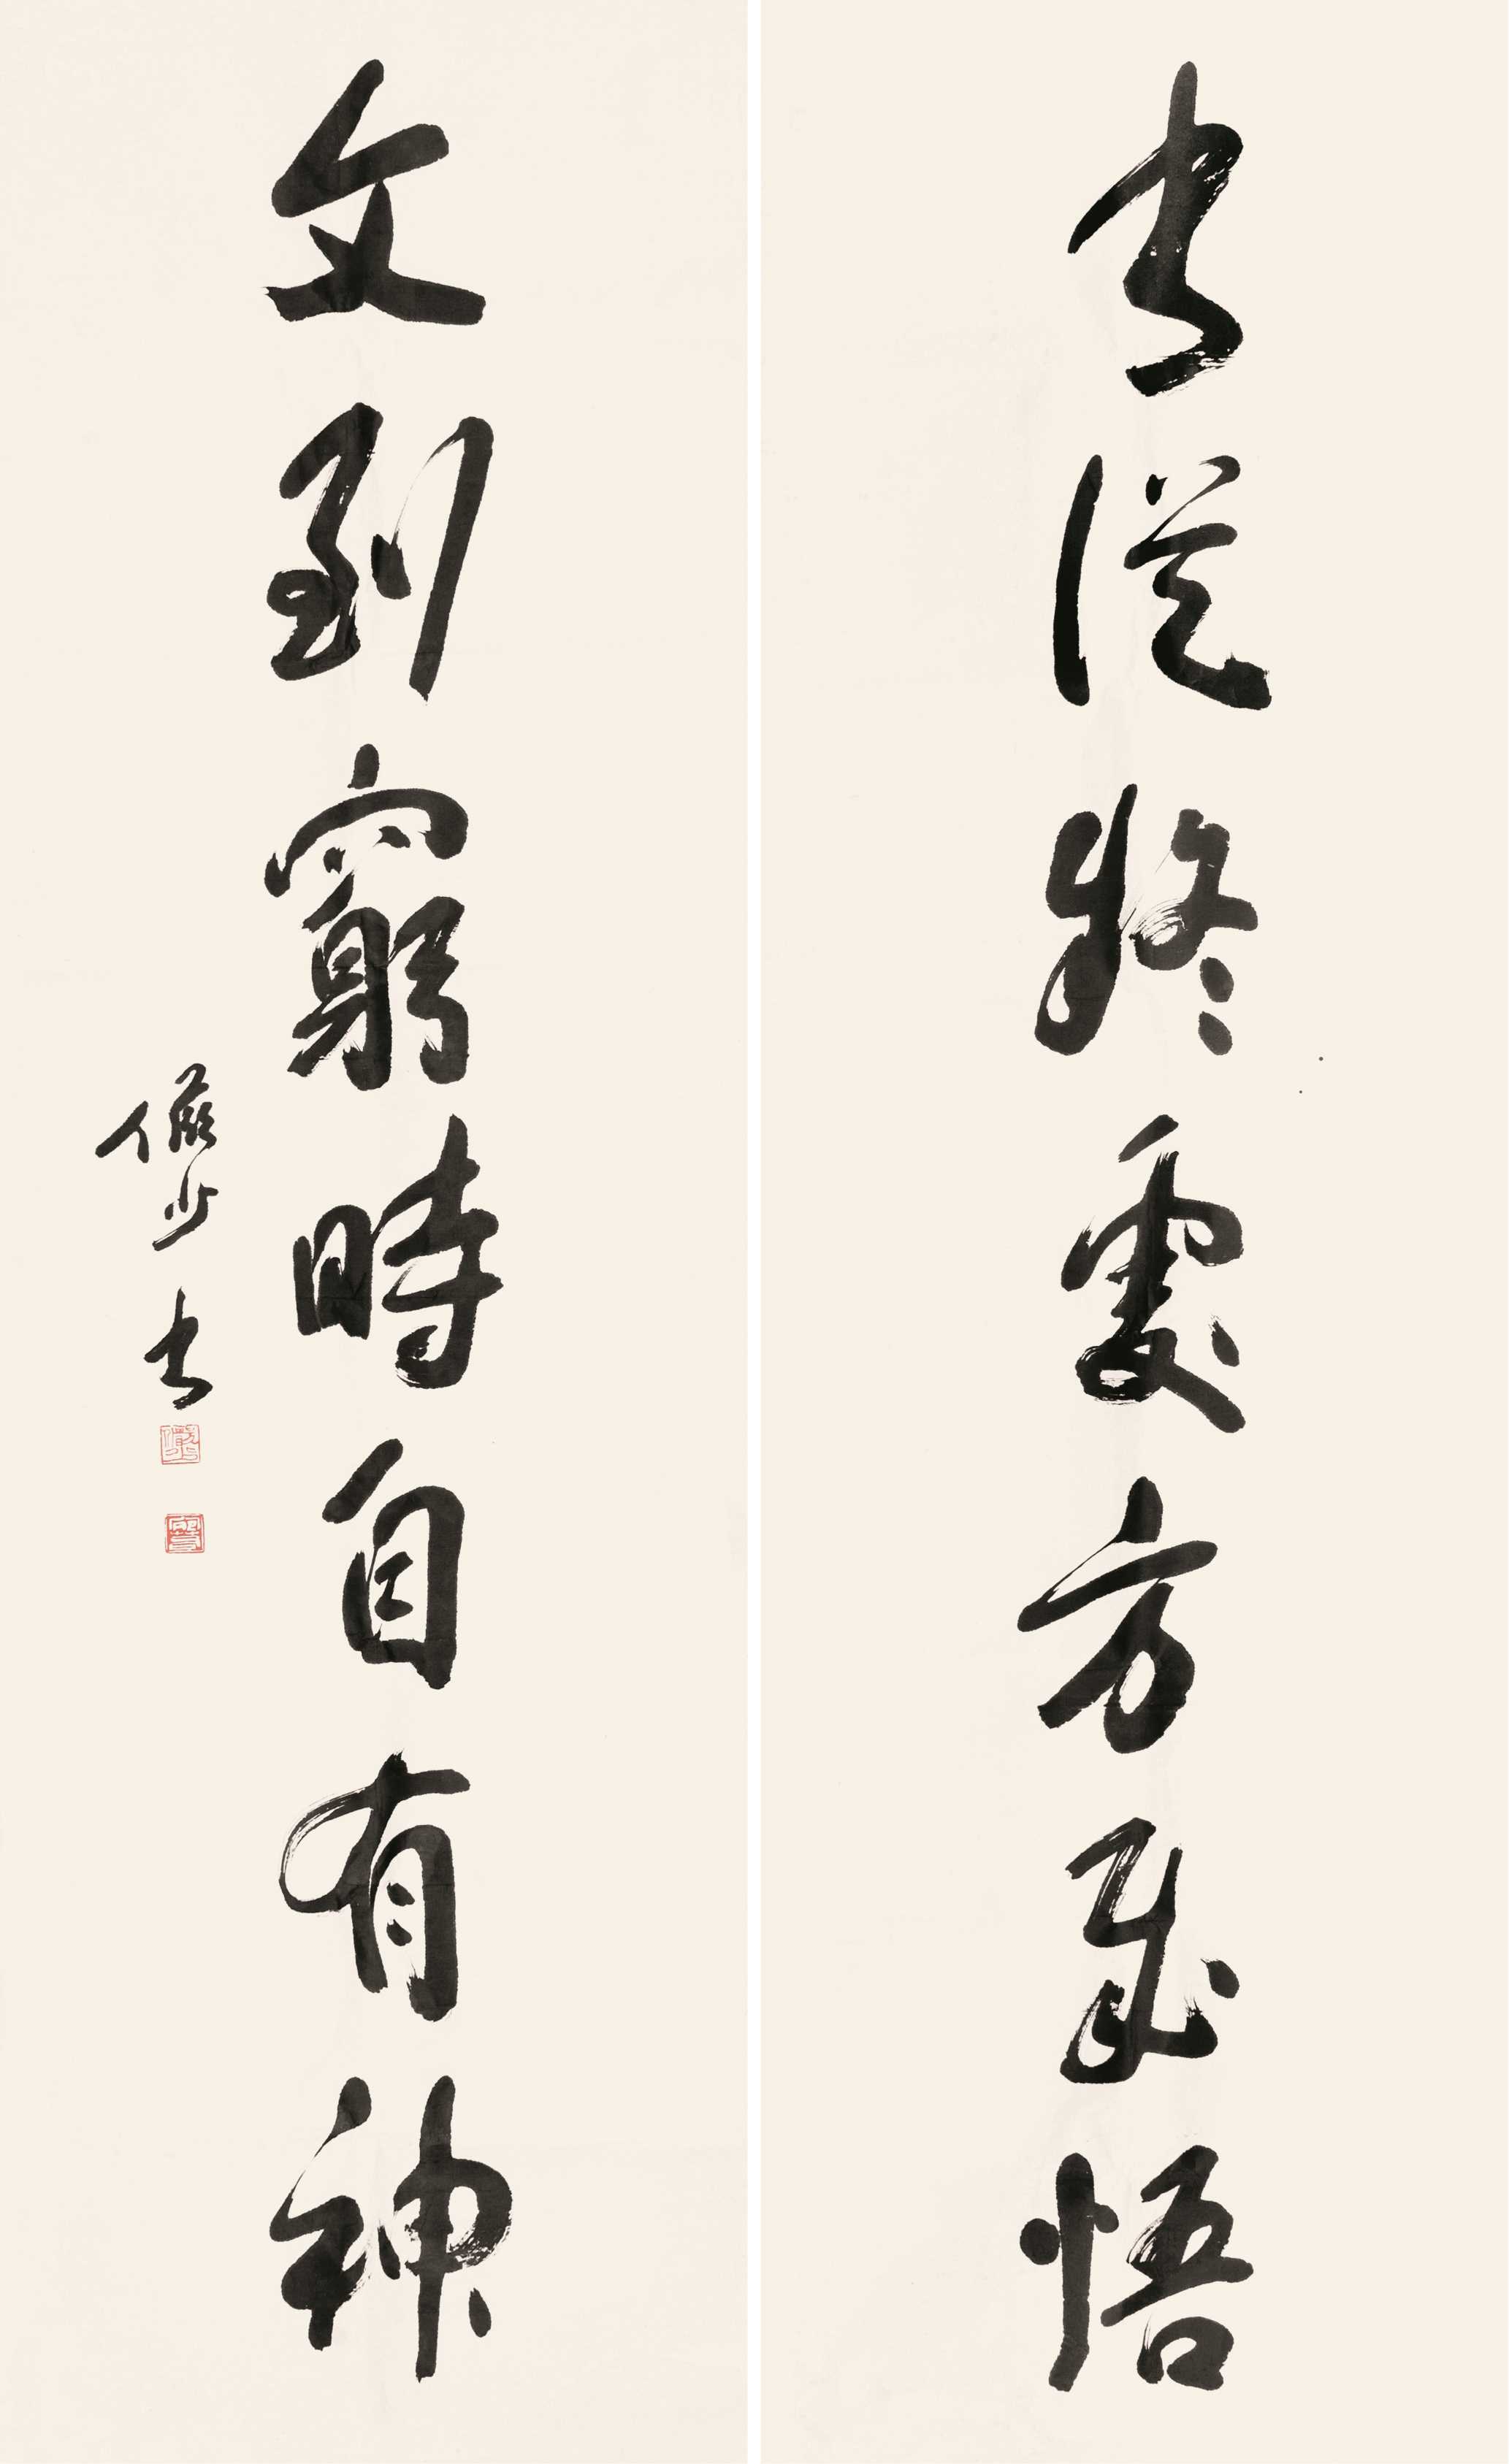 書從疑處方成悟
文到窮時自有神
儼少書